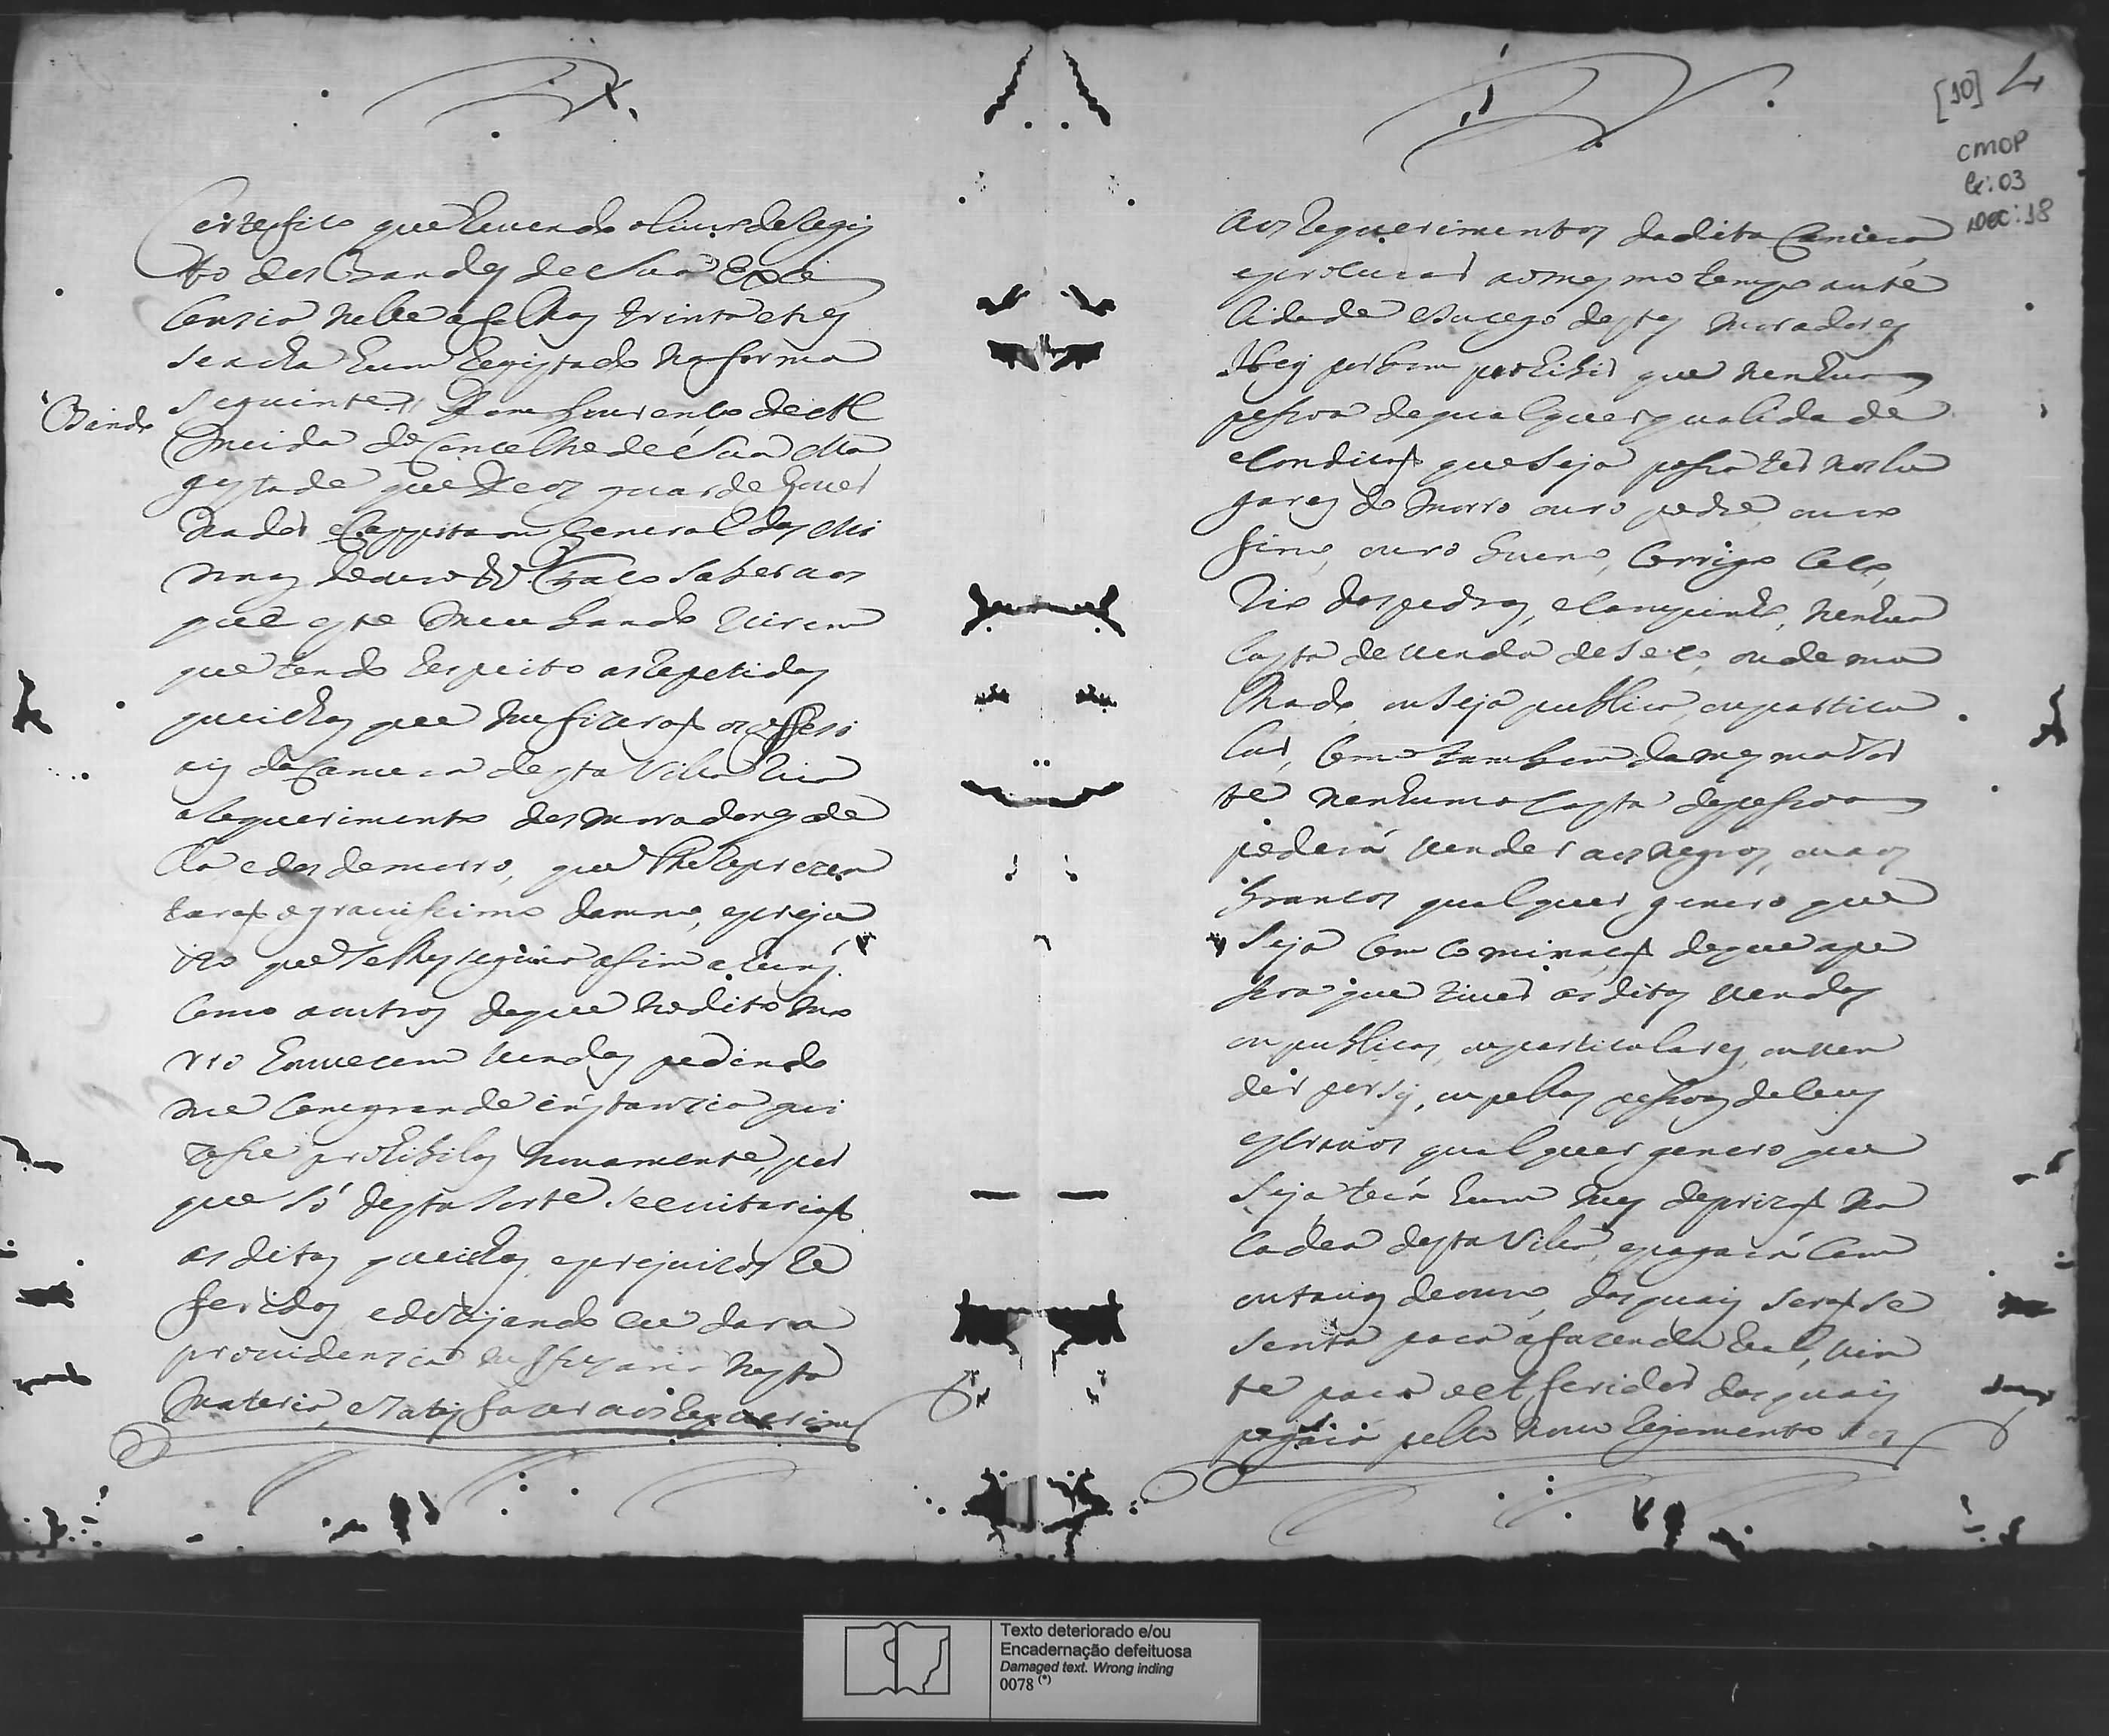 Certefico que Revendo o livro de Regis
to dos Bandos de Sua Exce
lencia nelle a folhas trinta e tres
se acha hum Registado na forma
Bando
seguinte Dom Lourenço de Al
meida do Concelho de Sua Ma
gestade que Deos guarde Gover
nador e Cappitam General das Mi
nnas de ouro &.ª Faço saber aos
que este meu bando virem
que tendo Respeito as Repetidas
queichas que me fizeraõ os offeci
ais da Camera desta Villa Rica
a Requerimento dos moradores de
la e dos do morro, que lhe Reprezen
taraõ o gravissimo damno, e prejui
zo que se lhes seguia asim a huns
como a outros de que no dito mo
rro houvecem vendas pedindo
me com grande instancia qui
zesse prohibilas novamente, por
que só desta sorte se evitariaõ
as ditas queichas e prejuizos Re
feridos e dezejando eu dar a
providencia nessesaria nesta
materia, e satisfazer aos Requerim
aos Requerimentos da dita Camera
e procurar ao mesmo tempo a uti
lidade e sucego destes moradores
Hey por bem prohibir que nenhuma
pessoa de qualquer qualidade
e condiçaõ que seja possa ter nos lu
gares do morro ouro podre, ouro
fino, ouro bueno, Corrigo Ceco,
Rio das pedras, e Campinho, nenhua
casta de venda de seco, ou de mo
lhado, ou seja publica, ou particu
lar, como tambem da mesma sor
te nenhuma casta de pessoa
poderá vender aos negros, ou aos
brancos qualquer genero que
seja com cominaçaõ de que a pe
ssoa que tiver as ditas vendas
ou publicas, ou particulares, ou ven
der por sy, ou pellas pessoas de seus
escravos qualquer genero que
seja terá hum mes de prizaõ na
cadea desta Villa, e pagará cem
outavas de ouro, das quais seraõ se
senta para a fazenda Real, vin
te para o Alferidor das quais
pagará pello novo Regimento
[10] 4
CMOP
Cx: 03
DOC: 18
Texto deteriorado e/ou
Encadernação defeituosa
Damaged text. Wrong inding
0078 (*)